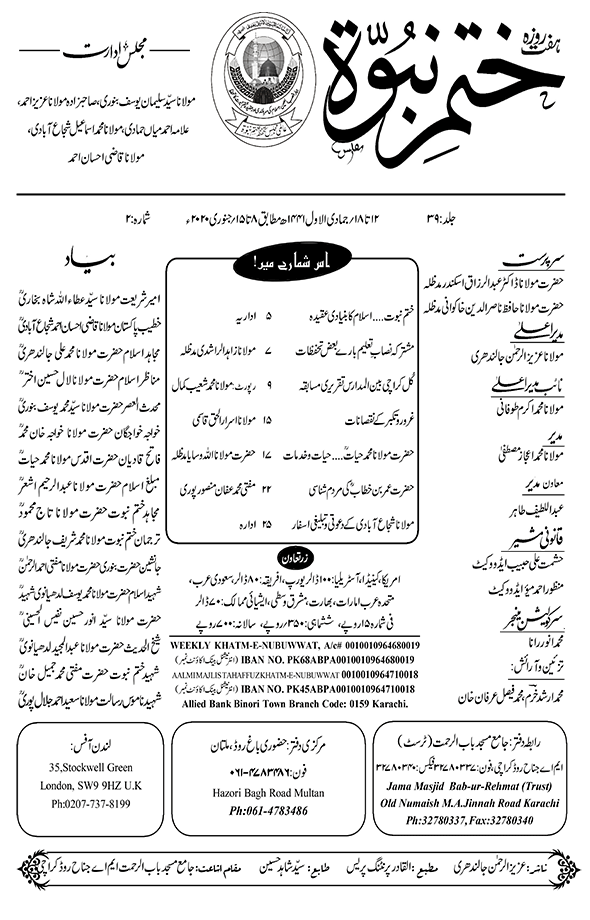 ہفت روزہ
ختم نبوّة
مجلس ادارت
مولانا سیّد سلیمان یوسف بنوری، صاحبزادہ مولانا عزیز احمد،
علامہ احمد میاں حمادی، مولانا محمد اسماعیل شجاع آبادی،
مولانا قاضی احسان احمد
جلد: ۳۹
۱۲ تا ۱۸/ جمادی الاول ۱۴۴۱ھ مطابق ۸ تا ۱۵/ جنوری ۲۰۲۰ء
شمارہ: ۲
سرپرست
حضرت مولانا ڈاکٹر عبدالرزاق اسکندر مدظلہ
حضرت مولانا حافظ ناصر الدین خاکوانی مدظلہ
مدیر اعلےٰ
مولانا عزیز الرحمٰن جالندھری
نائب مدیر اعلےٰ
مولانا محمد اکرم طوفانی
مدیر
مولانا محمد اعجاز مصطفیٰ
معاون مدیر
عبداللطیف طاہر
قانونی مشیر
حشمت علی حبیب ایڈووکیٹ
منظور احمد میؤ ایڈووکیٹ
سرکولیشن منیجر
محمد انور رانا
تزئین و آرائش:
محمد ارشد خرم، محمد فیصل عرفان خان
اس شمارے میں!
ختم نبوت.... اسلام کا بنیادی عقیدہ ۵ اداریہ
مشترکہ نصاب تعلیم بارے بعض تحفظات ۷ مولانا زاہد الراشدی مدظلہ
کل کراچی بین المدارس تقریری مسابقہ ۹ رپورٹ: مولانا محمد شعیب کمال
غرور و تکبر کے نقصانات ۱۵ مولانا اسرار الحق قاسمی
حضرت مولانا محمد حیاتؒ.... حیات و خدمات ۱۷ حضرت مولانا اللہ وسایا مدظلہ
حضرت عمر بن خطابؓ کی مردم شناسی ۲۲ مفتی محمد عفان منصور پوری
مولانا شجاع آبادی کے دعوتی و تبلیغی اسفار ۲۵ ادارہ
زر تعاون
امریکا، کینیڈا، آسٹریلیا: ۱۰۰ ڈالر یورپ، افریقہ: ۸۰ ڈالر، سعودی عرب،
متحدہ عرب امارات، بھارت، مشرق وسطیٰ، ایشیائی ممالک: ۷۰ ڈالر
فی شمارہ ۱۵ روپے، ششماہی: ۳۵۰ روپے، سالانہ: ۷۰۰ روپے
WEEKLY KHATM-E-NUBUWWAT, A/c# 0010010964680019
IBAN NO. PK68ABPA0010010964680019 (انٹرنیشنل بینک اکاؤنٹ نمبر)
AALMIMAJLISTAHAFFUZKHATM-E-NUBUWWAT 0010010964710018
IBAN NO. PK45ABPA0010010964710018 (انٹرنیشنل بینک اکاؤنٹ نمبر)
Allied Bank Binori Town Branch Code: 0159 Karachi.
بیاد
امیر شریعت مولانا سیّد عطاء اللہ شاہ بخاریؒ
خطیب پاکستان مولانا قاضی احسان احمد شجاع آبادیؒ
مجاہد اسلام حضرت مولانا محمد علی جالندھریؒ
مناظر اسلام حضرت مولانا لال حسین اخترؒ
محدث العصر حضرت مولانا سیّد محمد یوسف بنوریؒ
خواجہ خواجگان حضرت مولانا خواجہ خان محمدؒ
فاتح قادیان حضرت اقدس مولانا محمد حیاتؒ
مبلغ اسلام حضرت مولانا عبدالرحیم اشعرؒ
مجاہد ختم نبوت حضرت مولانا تاج محمودؒ
ترجمان ختم نبوت مولانا محمد شریف جالندھریؒ
جانشین حضرت بنوری حضرت مولانا مفتی احمد الرحمٰنؒ
شہید اسلام حضرت مولانا محمد یوسف لدھیانوی شہیدؒ
حضرت مولانا سیّد انور حسین نفیس الحسینیؒ
شیخ الحدیث حضرت مولانا عبدالمجید لدھیانویؒ
شہید ختم نبوت حضرت مفتی محمد جمیل خانؒ
شہید ناموس رسالت مولانا سعید احمد جلال پوریؒ
رابطہ دفتر: جامع مسجد باب الرحمت (ٹرسٹ)
ایم اے جناح روڈ کراچی، فون: ۳۲۷۸۰۳۳۷ فیکس: ۳۲۷۸۰۳۴۰
Jama Masjid Bab-ur-Rehmat (Trust)
Old Numaish M.A.Jinnah Road Karachi
Ph:32780337, Fax:32780340
مرکزی دفتر: حضوری باغ روڈ، ملتان
فون: ۰۶۱-۴۷۸۳۴۸۶
Hazori Bagh Road Multan
Ph:061-4783486
لندن آفس:
35,Stockwell Green
London, SW9 9HZ U.K
Ph:0207-737-8199
ناشر: عزیز الرحمٰن جالندھری مطبع: القادر پرنٹنگ پریس طابع: سیّد شاہد حسین مقام اشاعت: جامع مسجد باب الرحمت ایم اے جناح روڈ کراچی